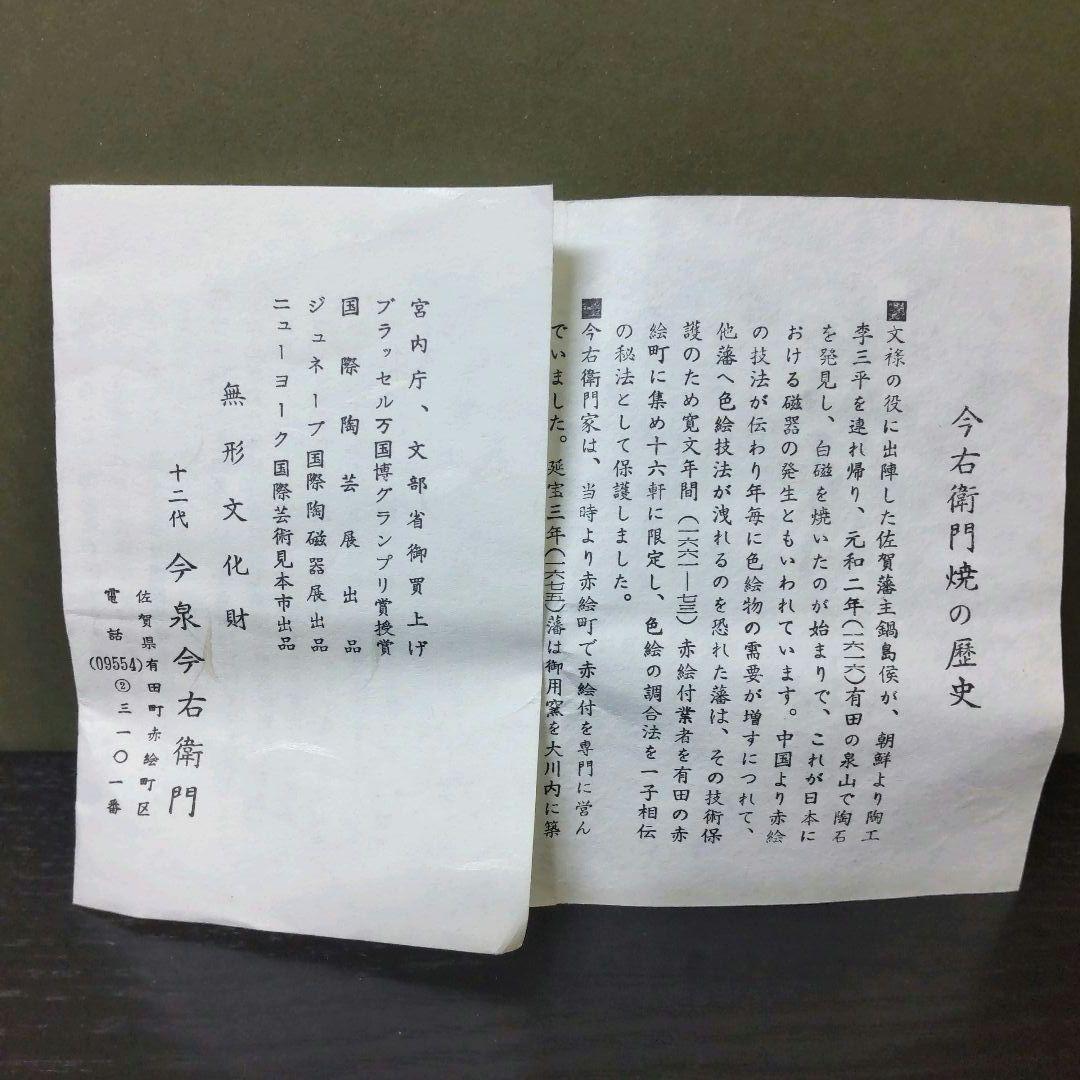 今右衛門焼の歴史
文禄の役に出陣した佐賀藩主鍋島侯が、朝鮮より陶工
李三平を連れ帰り、元和二年(一六一六)有田の泉山で陶石
を発見し、白磁を焼いたのが始まりで、これが日本に
おける磁器の発生ともいわれています。中国より赤絵
の技法が伝わり年毎に色絵物の需要が増すにつれて、
他藩へ色絵技法が洩れるのを恐れた藩は、その技術保
護のため寛文年間(一六六一―七三)赤絵付業者を有田の赤
絵町に集め十六軒に限定し、色絵の調合法を一子相伝
の秘法として保護しました。
今右衛門家は、当時より赤絵町で赤絵付を専門に営ん
でいました。延宝三年(一六七五)藩は御用窯を大川内に築
宮内庁、文部省御買上げ
ブラッセル万国博グランプリ賞授賞
国際陶芸展出品
ジュネーブ国際陶磁器展出品
ニューヨーク国際芸術見本市出品
無形文化財
十二代 今泉今右衛門
佐賀県有田町赤絵町区
電話(09554)②三一〇一番